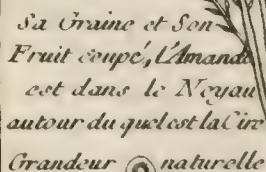 Sa Graine et Son
Fruit coupé, L'Amande
est dans le Noyau
autour du quel est la Cire
Grandeur naturelle